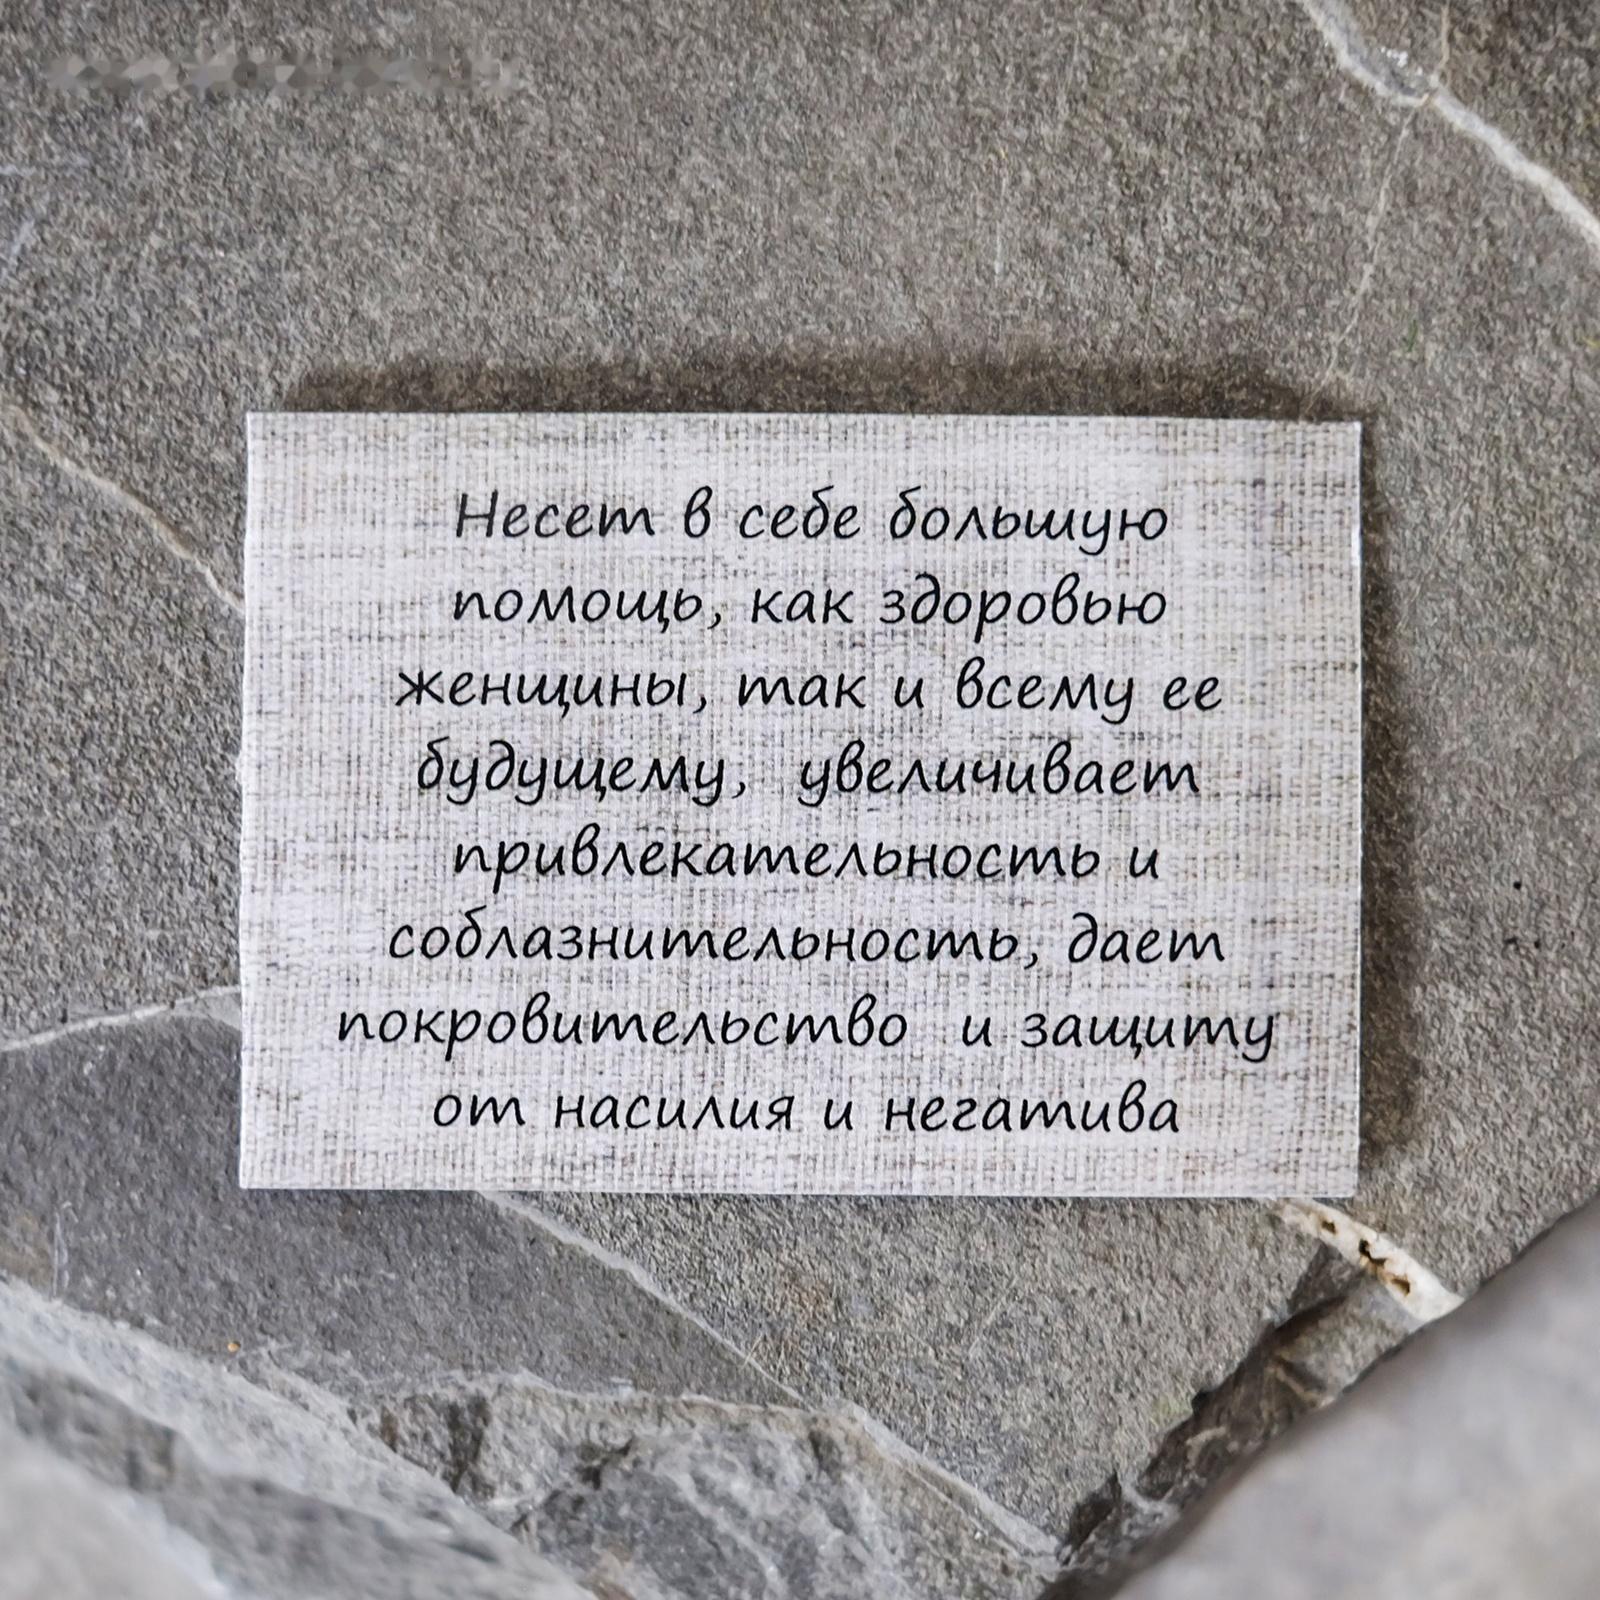 Несет в себе большую
помощь, как здоровью
женщины, так и всему ее
будущему, увеличивает
привлекательность и
соблазнительность, дает
покровительство и защиту
от насилия и негатива